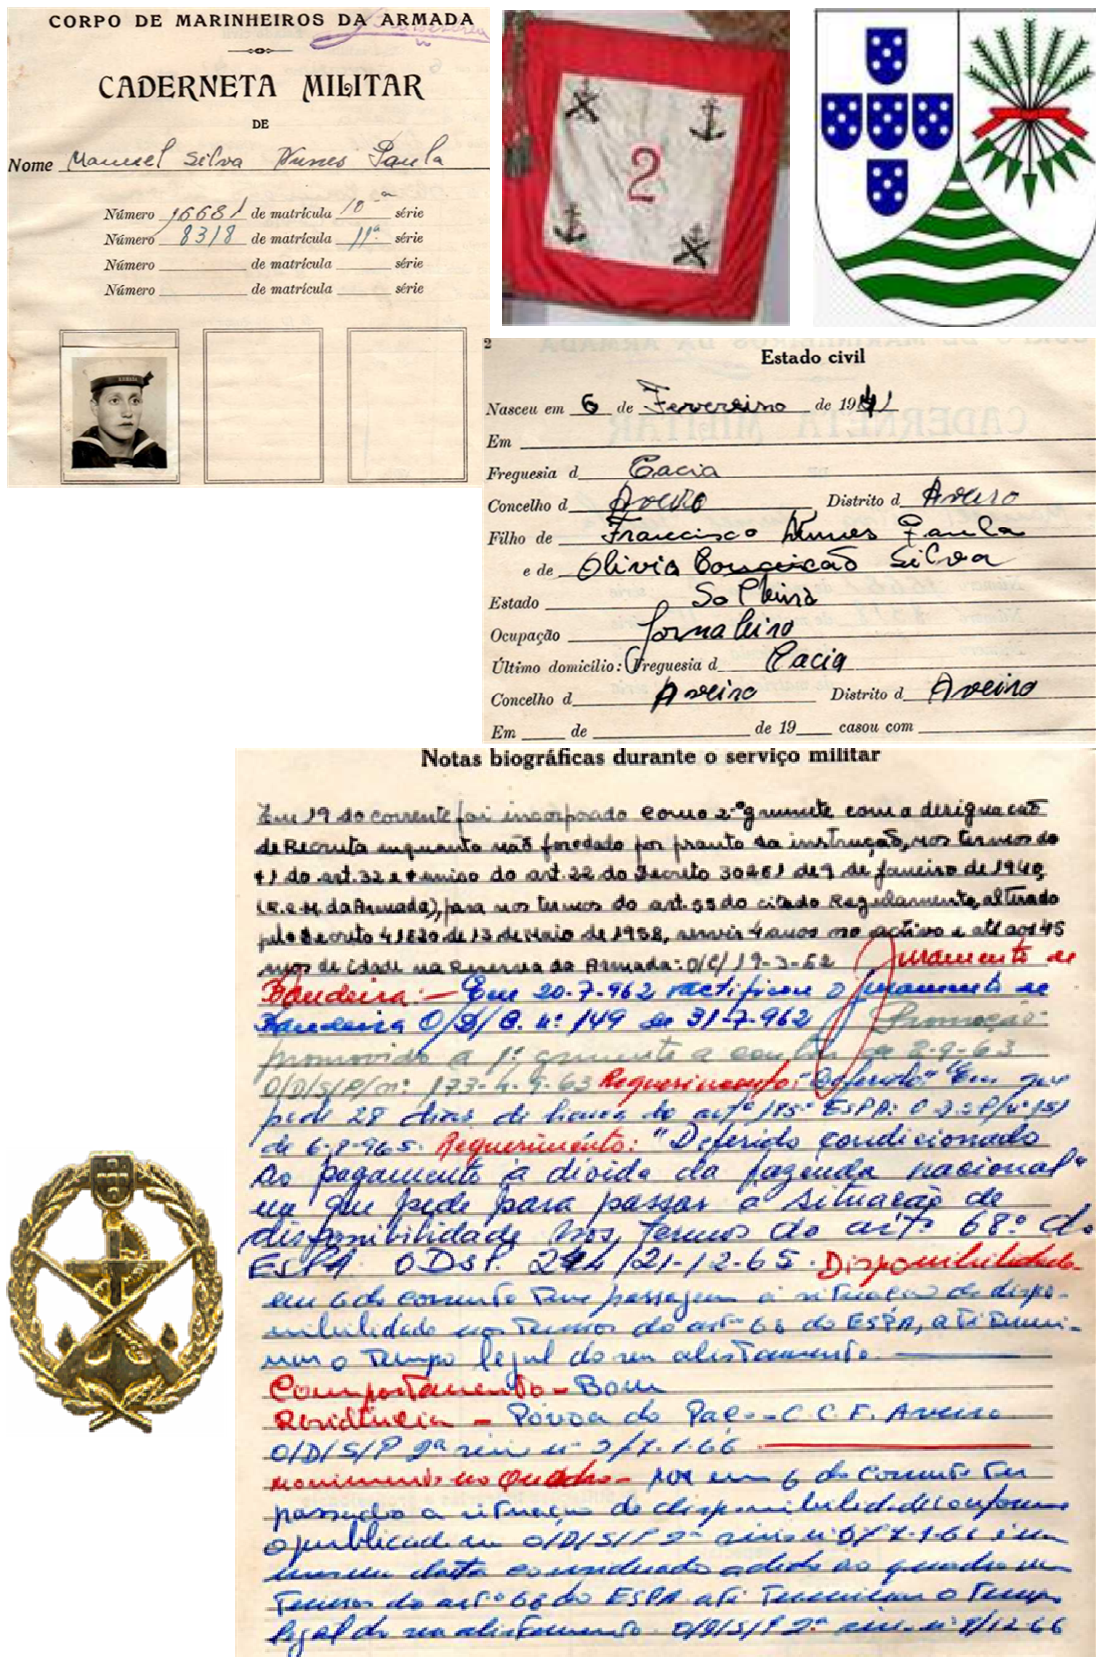 CORPO DE MARINHEIROS DA ARMADA
CADERNETA MILITAR
DE
Nome Manuel Silva Nunes Paula
Número 16681 de matrícula 10ª série
Número 8318 de matrícula 11ª série
Número de matrícula série
Número de matrícula série
2
2
Estado civil
Nasceu em 6 de Fevereiro de 1941
Em
Freguesia d Cacia
Concelho d Aveiro Distrito d Aveiro
Filho de Francisco Nunes Paula
e de Olivia Conceicão Silva
Estado Solteiro
Ocupação Jornaleiro
Último domicílio: Freguesia d Cacia
Concelho d Aveiro Distrito d Aveiro
Em de de 19 casou com
Notas biográficas durante o serviço militar
Em 19 do corrente foi incorporado como 2º grumete com a designacão
de Recruta enquanto não for dado por pronto da instrução, nos termos do
do art. 32 e do art. 22 do Decreto 30261 de 9 de janeiro de 1940
da Armada), para nos termos do art. 55 do citado Regulamento, alterado
pelo Decreto 41620 de 13 de Maio de 1958, servir 4 anos no activo e até aos 45
anos de idade na Reserva da Armada: O/C/ 19-3-62 Juramento de
Bandeira:- Em 20-7-962 ractificou o juramento de
Bandeira O/D/C. nº 149 de 31-7-962 Promoção:
promovido a 1º grumete a contar de 2-9-63
O/D/S/P/nº 173-4-9-63 Requerimento: "Deferido" Em que
pede 28 dias de licença do artº 185º ESPA: O.D.S.P/nº 151
de 6-8-965. Requerimento: "Deferido condicionado
ao pagamento à dívida da fazenda nacional"
em que pede para passar à situação de
disponibilidade nos termos do artº 68º do
ESPA ODSP. 244/21-12-65. Disponibilidade
em 6 do corrente teve passagem à situação de dispo-
nibilidade nos termos do artº 68 do ESPA, até termi-
nar o tempo legal do seu alistamento.
Comportamento - Bom
Residência - Póvoa do Paço - C.C.F. Aveiro
O/D/S/P 2ª série nº 5/7.1.66
Movimento no Quadro - em 6 do corrente ter
passado à situação de disponibilidade conforme
o publicado na O/D/S/P 2ª série nº 5/7-1-66 é na
mesma data considerado adido ao quadro nos
termos do artº 68 do ESPA até terminar o tempo
legal do seu alistamento. O/D/S/P 2ª série nº 8/12-66